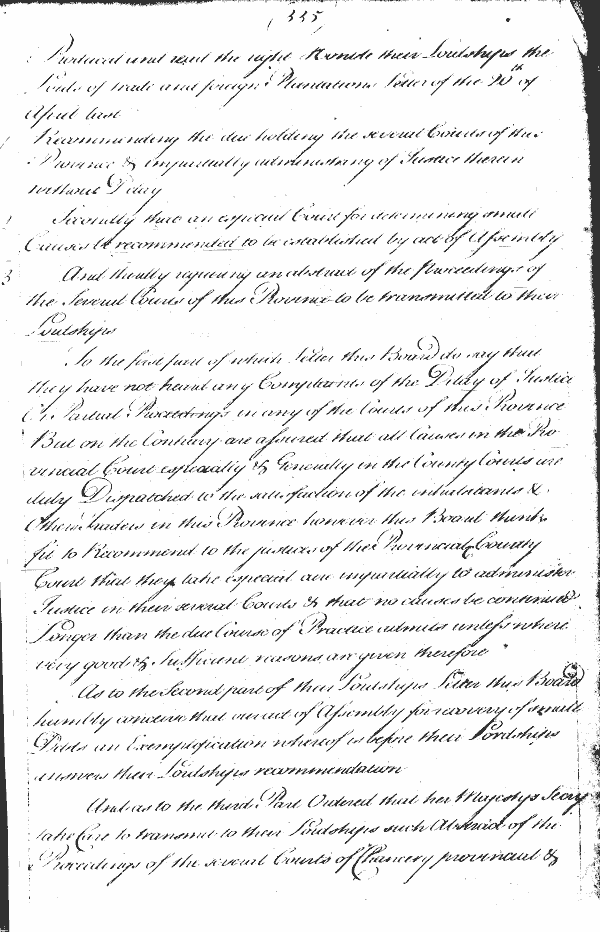 (335)
Produced and read the right Honble their Lordships the
Lords of trade and foreign Plantations Letter of the 20th of
April last
Recommending the due holding the several Courts of this
Province & impartially administring of Justice therein
without Delay
Secondly that an especial Court for determining small
Causes be recommended to be established by act of Assembly
3 And thirdly requiring an abstract of the Proceedings of
the Several Courts of this Province to be transmitted to their
Lordships
To the first part of which Letter this Board do say that
they have not heard any Complaints of the Delay of Justice
Or Partial Proceedings in any of the Courts of this Province
But on the Contrary are assured that all Causes in the Pro
vincial Court especially & Generally in the County Courts are
duly Dispatched to the satisfaction of the inhabitants &
Other Traders in this Province however this Board thinks
fit to Recommend to the justices of the Provincial & County
Court that they take especial care impartially to administer
Justice in their several Courts & that no causes be continued
Longer than the due Course of Practice admits unless where
very good & sufficient reasons are given therefore
As to the Second part of their Lordships Letter this Board
humbly conceive that our act of Assembly for recovery of small
Debts an Exemplification whereof is before their Lordships
answers their Lordships recommendation
And as to the third Part Ordered that her Majestys Secry
take Care to transmit to their Lordships such Abstract of the
Proceedings of the several Courts of Chancery provincial &